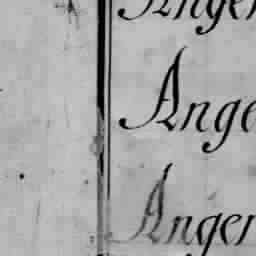 Anger
Ange
Anger